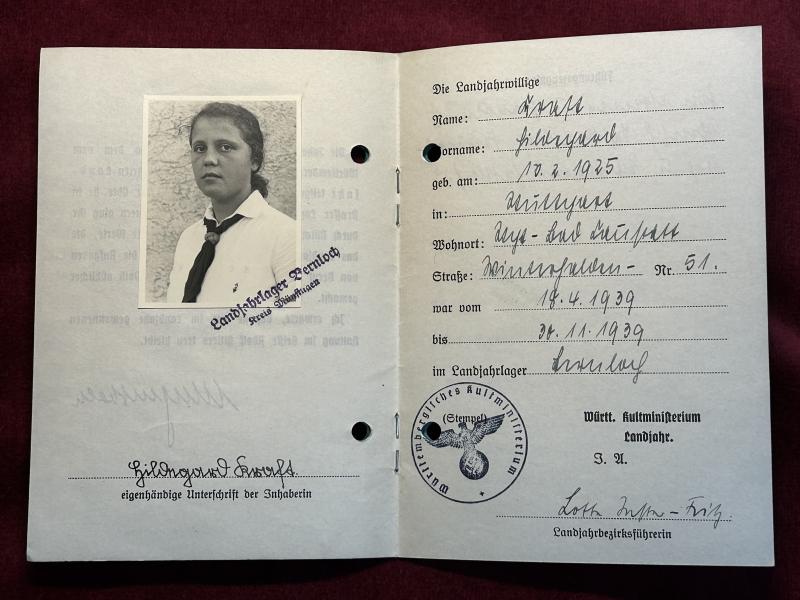 Landjahrlager Bernloch
Kreis Münsingen
Hildegard Kraft
eigenhändige Unterschrift der Inhaberin
Die Landjahrwillige
Name: Kraft
Vorname: Hildegard
geb. am: 10.2.1925
in: Stuttgart
Wohnort: Stgt-Bad Cannstatt
Straße: Winterhalden- Nr. 51.
war vom 18.4.1939
bis 30.11.1939
im Landjahrlager Bernloch
(Stempel)
Württembergisches Kultministerium
Württ. Kultministerium
Landjahr.
I. A.
Lotte
Landjahrbezirksführerin